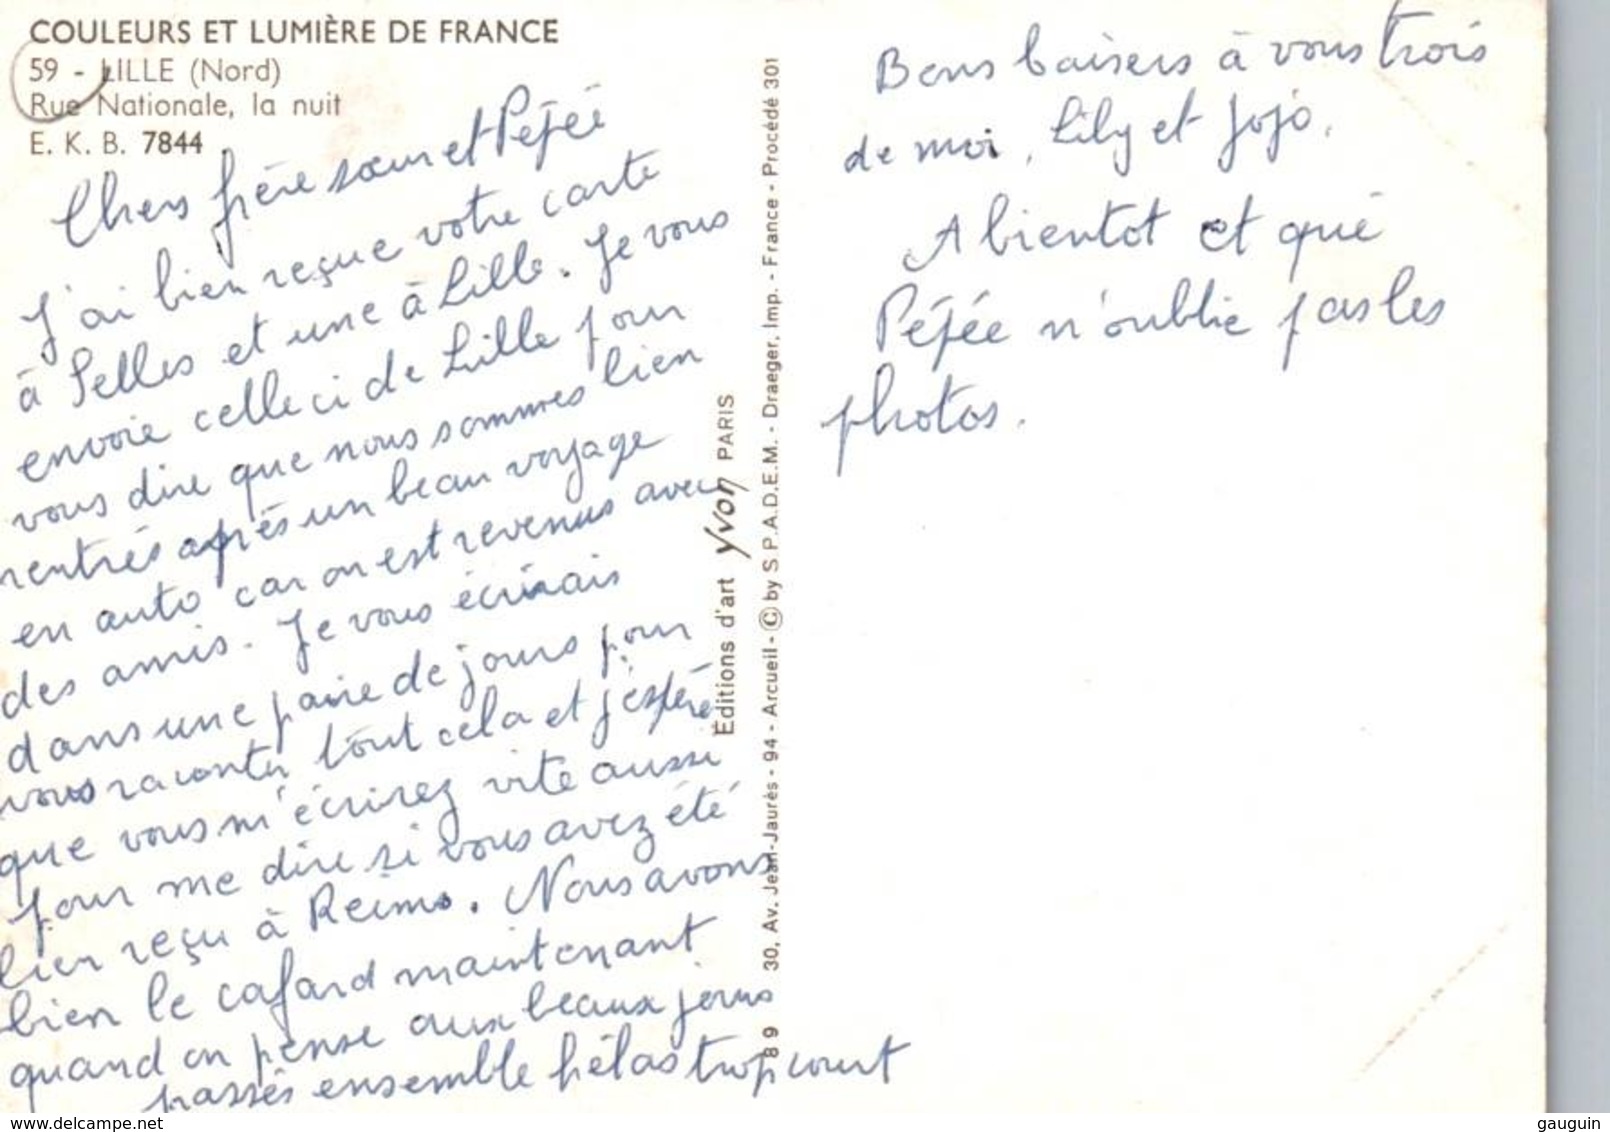 COULEURS ET LUMIÈRE DE FRANCE
59 - LILLE (Nord)
Rue Nationale, la nuit
E. K. B. 7844
Chers frère sœur et Péfée
J'ai bien reçue votre carte
à Selles et une à Lille. Je vous
envoie celle ci de Lille pour
vous dire que nous sommes bien
rentrés après un beau voyage
en auto car on est revenus avec
des amis. Je vous écrirais
dans une paire de jours pour
vous raconter tout cela et j'espère
que vous m'écrirez vite aussi
pour me dire si vous avez été
bien reçu à Reims. Nous avons
bien le cafard maintenant
quand on pense aux beaux jours
passés ensemble hélas trop court
Bons baisers à vous trois
de moi, Lily et Jojo.
A bientot et que
Péfée n'oublie pas les
photos.
Éditions d'art Yvon PARIS
89 30, Av. Jean-Jaurès - 94 - Arcueil - © by S.P.A.D.E.M. - Draeger, Imp. - France - Procédé 301
www.delcampe.net
gauguin